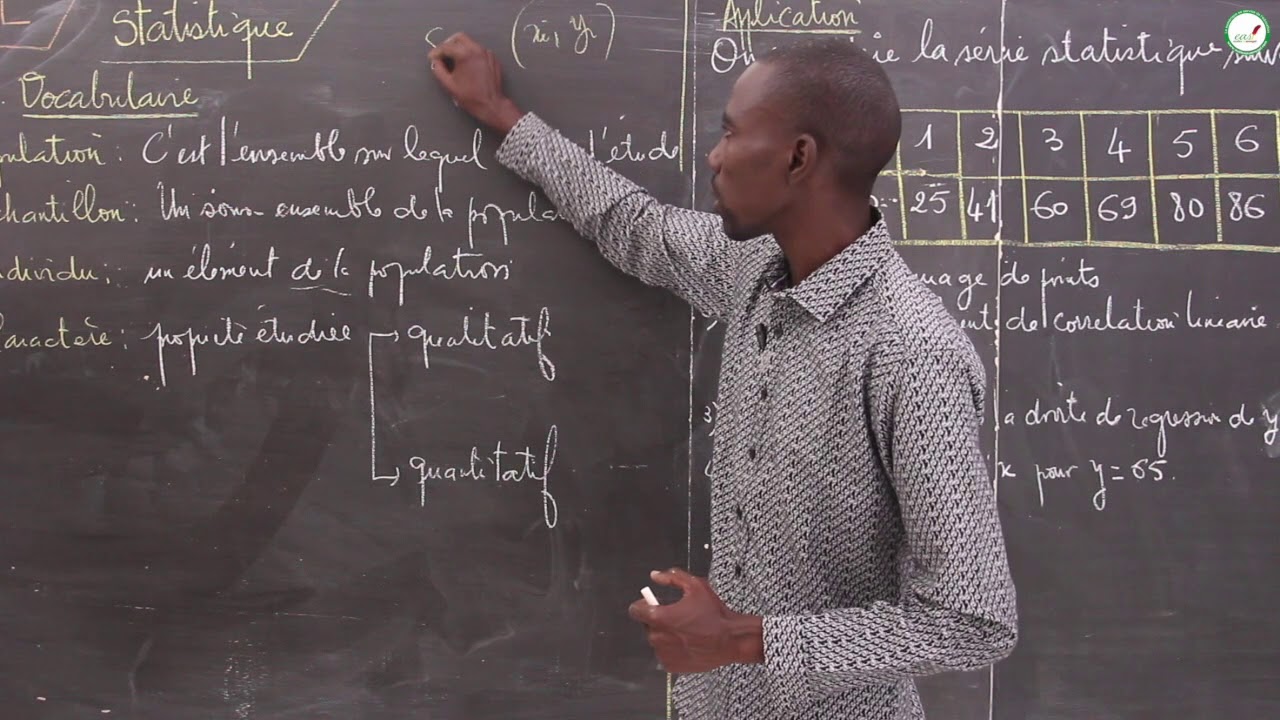 Statistique
(xi, yi)
Vocabulaire
pulation : C'est l'ensemble sur lequel l'étude
chantillon : Un sous-ensemble de la popula
dividu : un élément de la population
aractère : propriété étudiée → qualitatif
→ quantitatif
Aplication
On la série statistique suiv
1 2 3 4 5 6
25 41 60 69 80 86
nuage de points
ent de correlation lineaire
3) a droite de regression de y
x pour y = 65.
eas